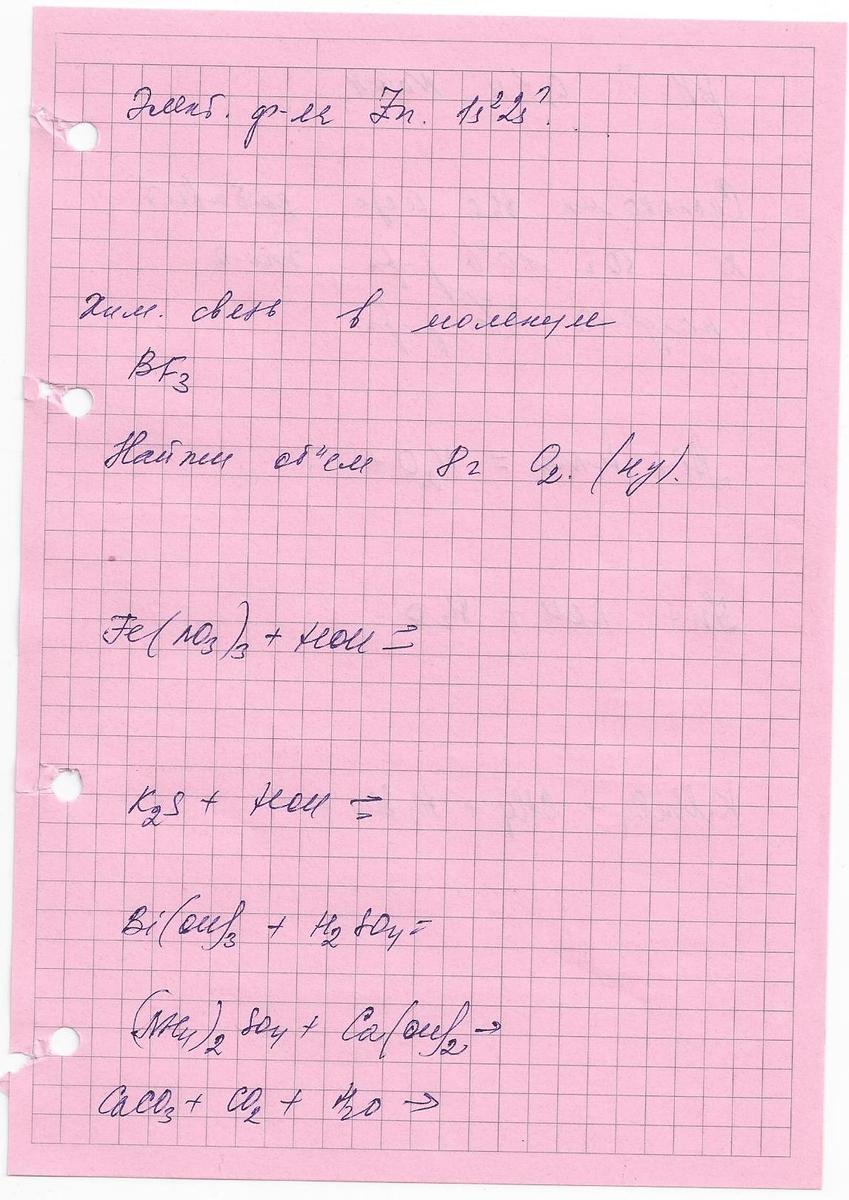 Элект. ф-ла Zn. 1s²2s?
Хим. связь в молекуле
BF₃
Найти об'ем 8г O₂. (н.у).
Fe(NO₃)₃ + HOH ⇄
K₂S + HOH ⇄
Bi(OH)₃ + H₂SO₄ =
(NH₄)₂SO₄ + Ca(OH)₂ →
CaCO₃ + CO₂ + H₂O →